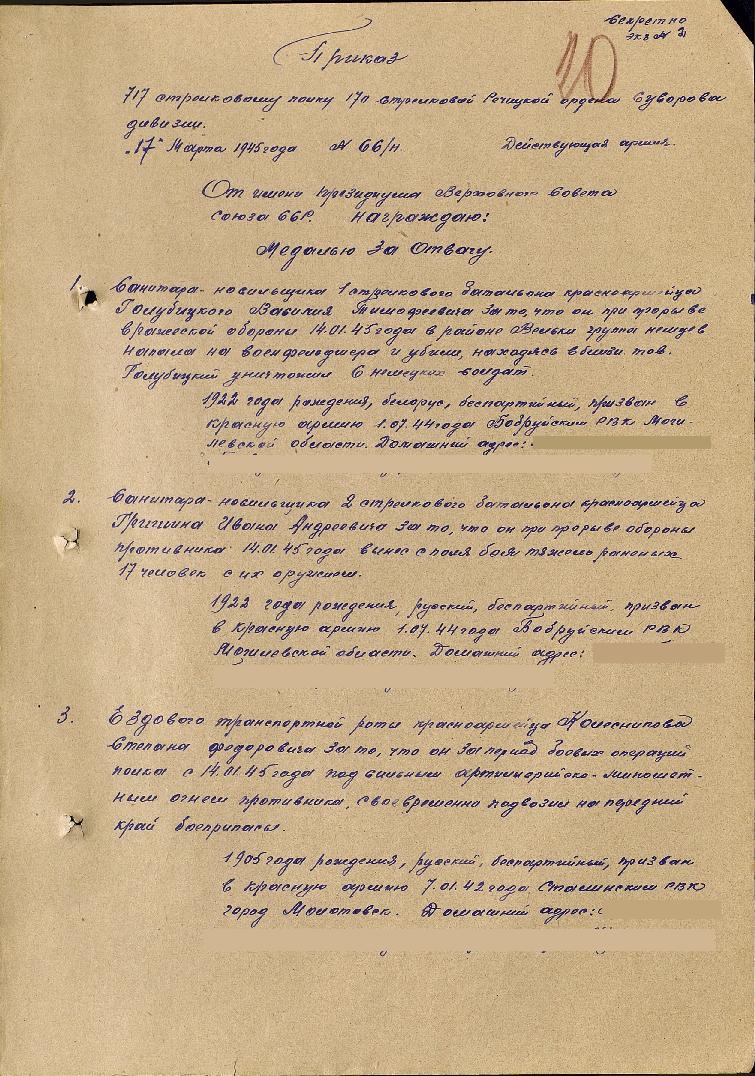 Секретно
экз № 2
20
Приказ
717 стрелковому полку 170 стрелковой Речицкой ордена Суворова
дивизии.
"17" Марта 1945 года № 66/н. Действующая армия.
От имени Президиума Верховного Совета
Союза ССР. награждаю:
Медалью За Отвагу.
1. Санитара-носильщика 1 стрелкового батальона красноармейца
Голубицкого Василия Тимофеевича за то, что он при прорыве
вражеской обороны 14.01.45 года в районе группа немцев
напала на военфельдшера и убили, находясь вблизи тов.
Голубицкий уничтожил 6 немецких солдат.
1922 года рождения, белорус, беспартийный, призван в
красную армию 1.07.44 года Бобруйским РВК Моги-
левской области. Домашний адрес:
2. Санитара-носильщика 2 стрелкового батальона красноармейца
Гришина Ивана Андреевича за то, что он при прорыве обороны
противника 14.01.45 года вынес с поля боя тяжело раненых
17 человек с их оружием.
1922 года рождения, русский, беспартийный, призван
в красную армию 1.07.44 года Бобруйским РВК
Могилевской области. Домашний адрес:
3. Ездового транспортной роты красноармейца Колесникова
Степана Федоровича за то, что он за период боевых операций
полка с 14.01.45 года под сильным артиллерийско-миномет-
ным огнем противника, своевременно подвозил на передний
край боеприпасы.
1905 года рождения, русский, беспартийный, призван
в красную армию 7.01.42 года Сталинским РВК
город Молотовск. Домашний адрес: